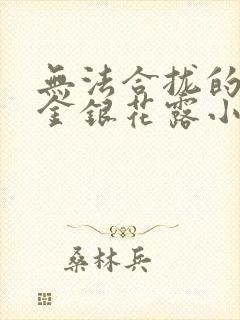 無法合拢的
金銀花露小
桑林兵